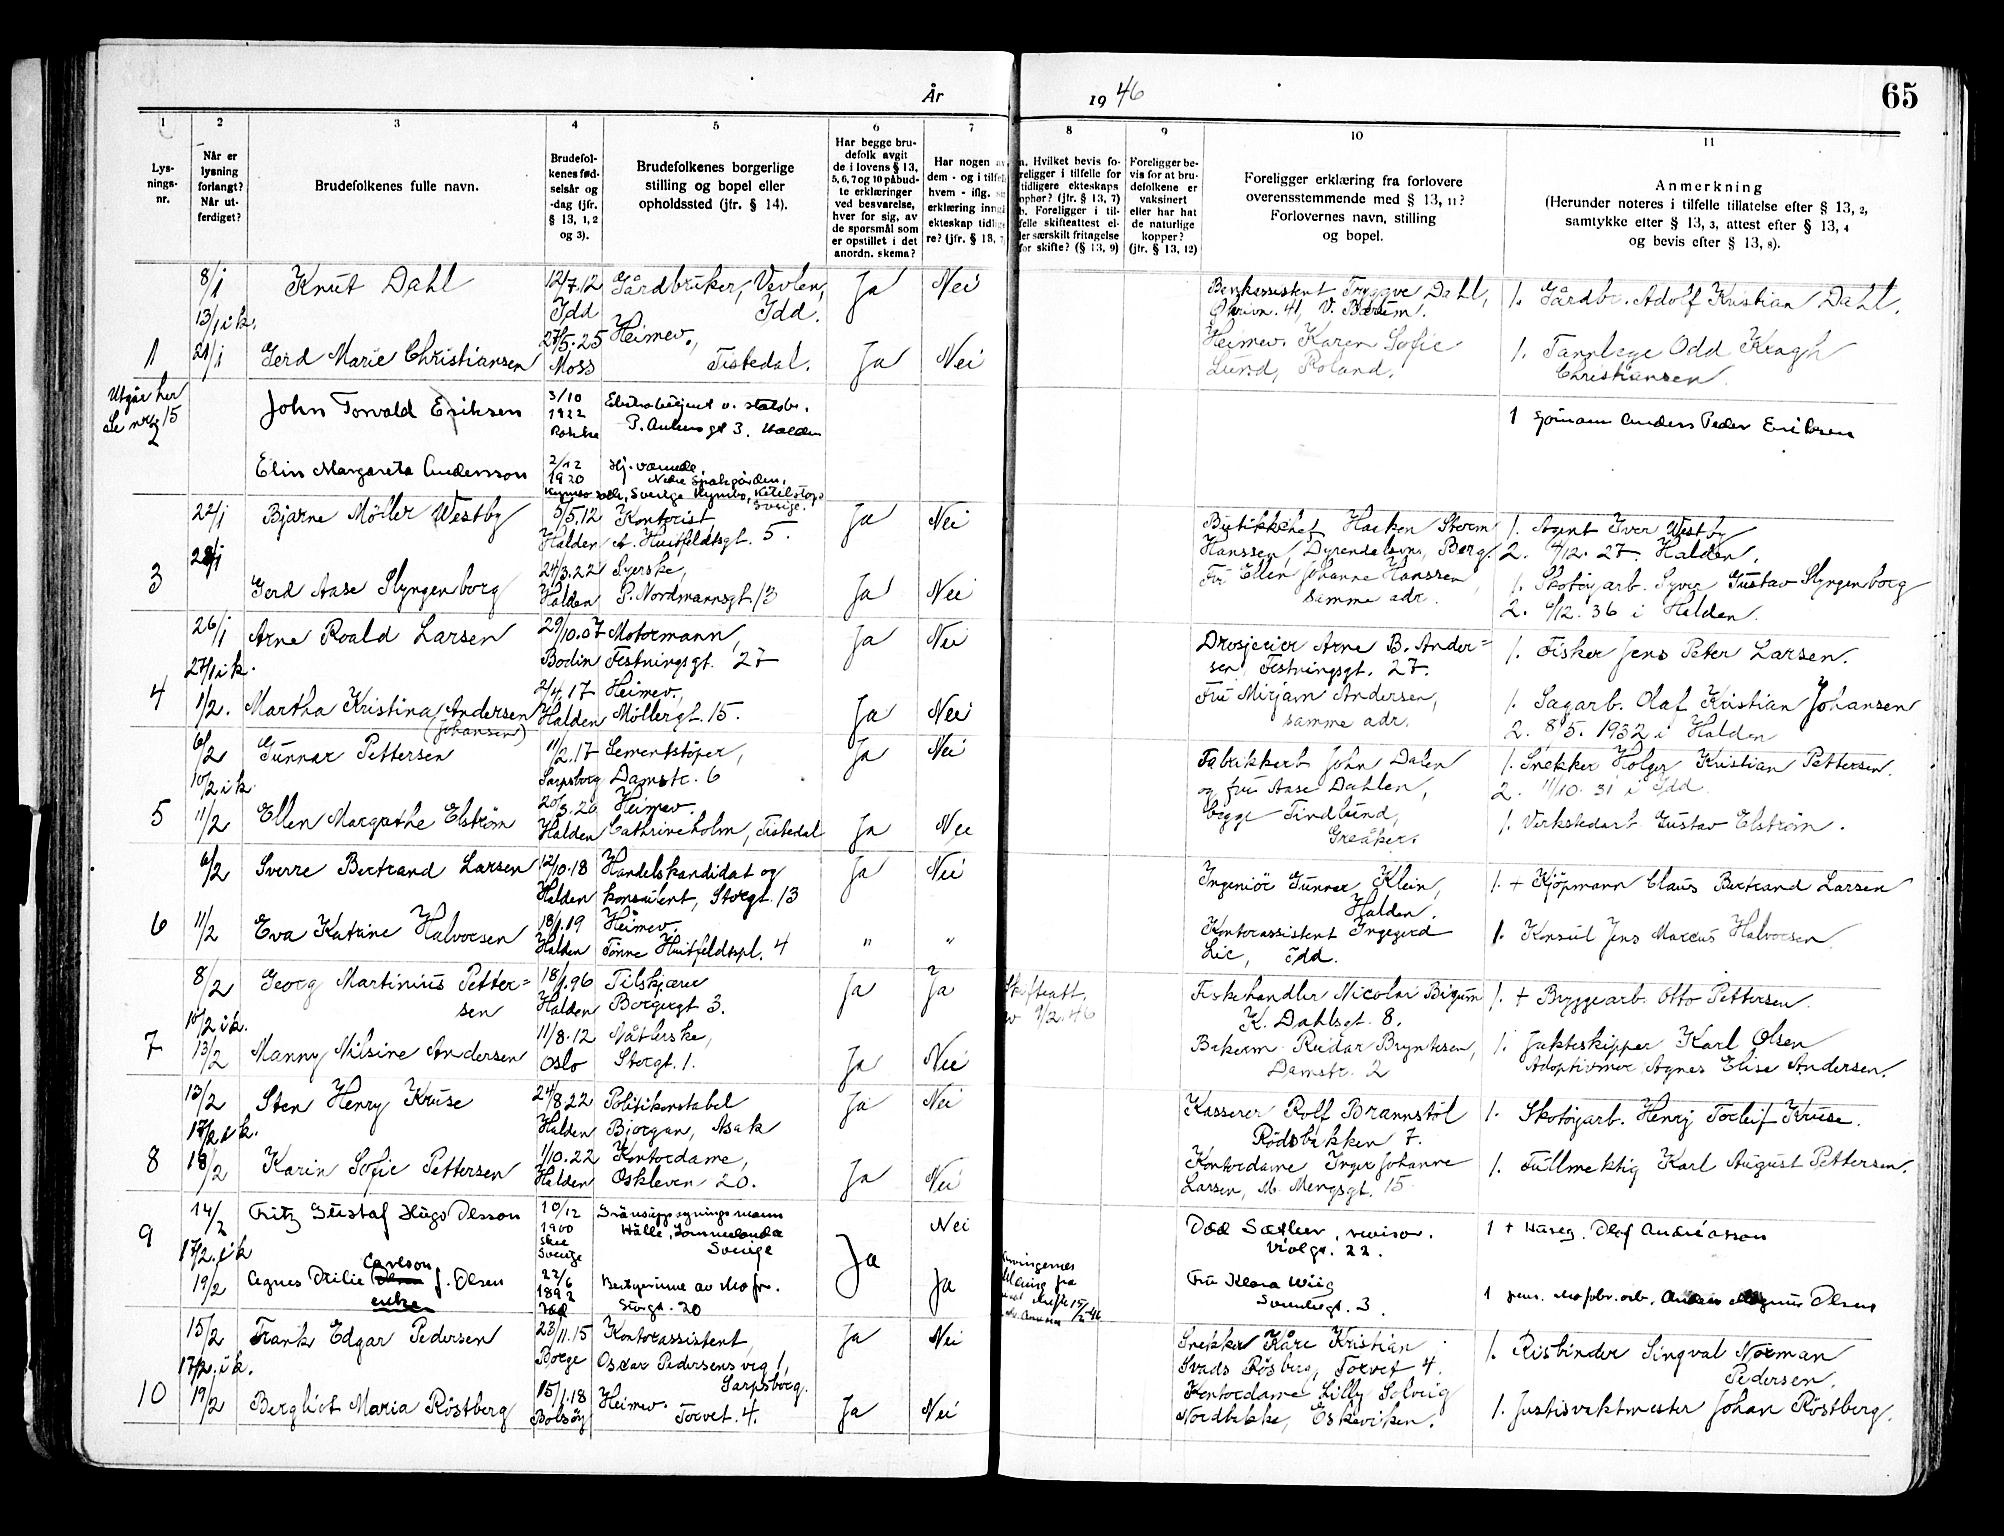 År 1946
65
1 2 3 4 5 6 7 8 9 10 11
Lys-
nings-
nr.
Når er
lysning
forlangt?
Når ut-
ferdiget?
Brudefolkenes fulle navn.
Brudefol-
kenes fød-
selsår og
-dag (jfr.
§ 13, 1, 2
og 3).
Brudefolkenes borgerlige
stilling og bopel eller
opholdssted (jfr. § 14).
Har begge bru-
defolk avgit
de i lovens § 13,
5, 6, 7 og 10 påbud-
te erklæringer
ved besvarelse,
hver for sig, av
de spørsmål som
er opstillet i det
anordn. skema?
Har nogen av
dem - og i tilfelle
hvem - iflg. sin
erklæring inngått
ekteskap tidlige-
re? (jfr. § 13, 7)
a. Hvilket bevis fo-
religger i tilfelle for
tidligere ekteskaps
ophør? (jfr. § 13, 7)
b. Foreligger i til-
felle skifteattest el-
ler særskilt fritagelse
for skifte? (§ 13, 9)
Foreligger be-
vis for at bru-
defolkene er
vaksinert
eller har hat
de naturlige
kopper?
(jfr. § 13, 12)
Foreligger erklæring fra forlovere
overensstemmende med § 13, 11?
Forlovernes navn, stilling
og bopel.
Anmerkning
(Herunder noteres i tilfelle tillatelse efter § 13, 2,
samtykke efter § 13, 3, attest efter § 13, 4
og bevis efter § 13, 8).
1
8/1
13/1 i k.
21/1
Knut Dahl
12/7.12
Idd
Gårdbruker, Vevlen,
Idd.
Ja
Nei
Bankassistent Trygve Dahl,
41, V. Bærum.
1. Gårdbr. Adolf Kristian Dahl.
Gerd Marie Christiansen
27/5.25
Moss
Heimev.,
Tistedal.
Ja
Nei
Heimev. Karen Sofie
Lund, Roland.
1. Tannlege Odd Kragh
Christiansen.
Utgår her
Se nr. 15
2
John Torvald Eriksen
3/10
1922
Rokke
Ekstrabetjent v. statsb.
P. Ankersgt 3. Halden
1 Sjømann Anders Peder Eriksen
Elin Margareta Andersson
2/12
1920
Hj. værende
Nedre Spakgården,
Sverige Kynnbo, Ketilstorp
Sverige.
3
22/1
28/1
Bjarne Møller Westby
5/5.12
Halden
Kontorist,
A. Huitfeldtsgt. 5.
Ja
Nei
Butikksjef Haakon Storm
Hanssen, Dyrendalsvn, Berg.
1. Agent Iver Westby
2. 4/12. 27. Halden.
Gerd Aase Slyngenborg
24/3.22
Halden
Syerske,
P. Nordmannsgt. 13
Ja
Nei
Fru Ellen Johanne Hanssen,
samme adr.
1. Skotøyarb. Syver Gustav Slyngenborg
2. 6/12. 36 i Halden.
4
26/1
27/1 i k.
1/2.
Arne Roald Larsen
29/10.07
Bodin
Motormann,
Festningsgt. 27
Ja
Nei
Drosjeeier Arne B. Ander-
sen, Festningsgt. 27.
1. Fisker Jens Peter Larsen.
Martha Kristina Andersen
(Johansen)
2/4.17
Halden
Heimev.,
Møllergt. 15.
Ja
Nei
Fru Mirjam Andersen,
samme adr.
1. Sagarb. Olaf Kristian Johansen
2. 8/5. 1932 i Halden
5
6/2
10/2 i k
11/2
Gunnar Pettersen
11/2.17
Sarpsborg
Sementstøper,
Damstr. 6
Ja
Nei
Fabrikkarb John Dalen
og fru Aase Dahlen,
begge Tindlund,
Greåker.
1. Snekker Holger Kristian Pettersen.
2. 11/10. 31 i Idd.
Ellen Margrethe Elstrøm
20/3.20
Halden
Heimev.
Cathrineholm, Tistedal
Ja
Nei
1. Verkstedarb Gustav Elstrøm.
6
6/2
11/2
Sverre Bertrand Larsen
12/10.18
Halden
Handelskandidat og
konsulent, Storgt. 13
Ja
Nei
Ingeniør Gunnar Klein,
Halden.
1. + Kjøpmann Claus Bertrand Larsen
Eva Katrine Halvorsen
18/1.19
Halden
Heimev.
Tønne Huitfeldtspl. 4
"
"
Kontorassistent Ingegerd
Lie, Idd.
1. Konsul Jens Marcus Halvorsen.
7
8/2
10/2 i k.
13/2
Georg Martinius Petter-
sen
18/1.96
Halden
Tilskjærer
Borgergt 3.
Ja
Ja
Skifteatt.
9/2.46
Fiskehandler Nicolai Bigum
K. Dahlsgt. 8.
1. + Bryggearb. Otto Pettersen.
Manny Nilsine Andersen
11/8.12
Oslo
Nåtlerske,
Storgt. 1.
Ja
Nei
Bakerm. Reidar Bryntesen,
Damstr. 2
1. Jakteskipper Karl Olsen
Adoptivmor Agnes Elise Andersen.
8
13/2
17/2 i k.
18/2
Sten Henry Kruse
24/8.22
Halden
Politikonstabel
Bjorgan, Asak
Ja
Nei
Kasserer Rolf Brannstøl
Rødsbakken 7.
1. Skotøyarb. Henry Torleif Kruse.
Karin Sofie Pettersen
1/10.22
Halden
Kontordame,
Oskleven 20.
Ja
Nei
Kontordame Inger Johanne
Larsen, M. Mengsgt. 15
1. Fullmektig Karl August Pettersen.
9
14/2
17/2. i k
19/2
Fritz Gustaf Hugo Olsson
10/12
1900
Skee
Sverige
Gränsuppsyningsmann
Hälle, Lommelanda
Sverige
Ja
Nei
Odd Sæther, revisor.
Violgt. 22.
1 + Huseg. Olof Andreasson
Agnes Otilie Carlson f. Olsen
enke
22/6
1892
Idd
Bestyrerinne av
Storgt. 20
Ja
Fru Klara Wiig
Svendsgt. 3.
1 pens. Anders Magnus Olsen
10
15/2
17/2. i k.
19/2
Frank Edgar Pedersen
23/11.15
Borge
Kontorassistent,
Oscar Pedersens veg 1,
Sarpsborg.
Ja
Nei
Snekker Kåre Kristian
Svads Røsberg, Torvet 4.
1. Risbinder Singval Norman
Pedersen.
Bergliot Maria Röstberg
15/1.18
Bolsøy
Heimev.
Torvet. 4.
Ja
Nei
Kontordame Lilly Solveig
Nordbakke, Eskeviken.
1. Justisvaktmester Johan Röstberg.